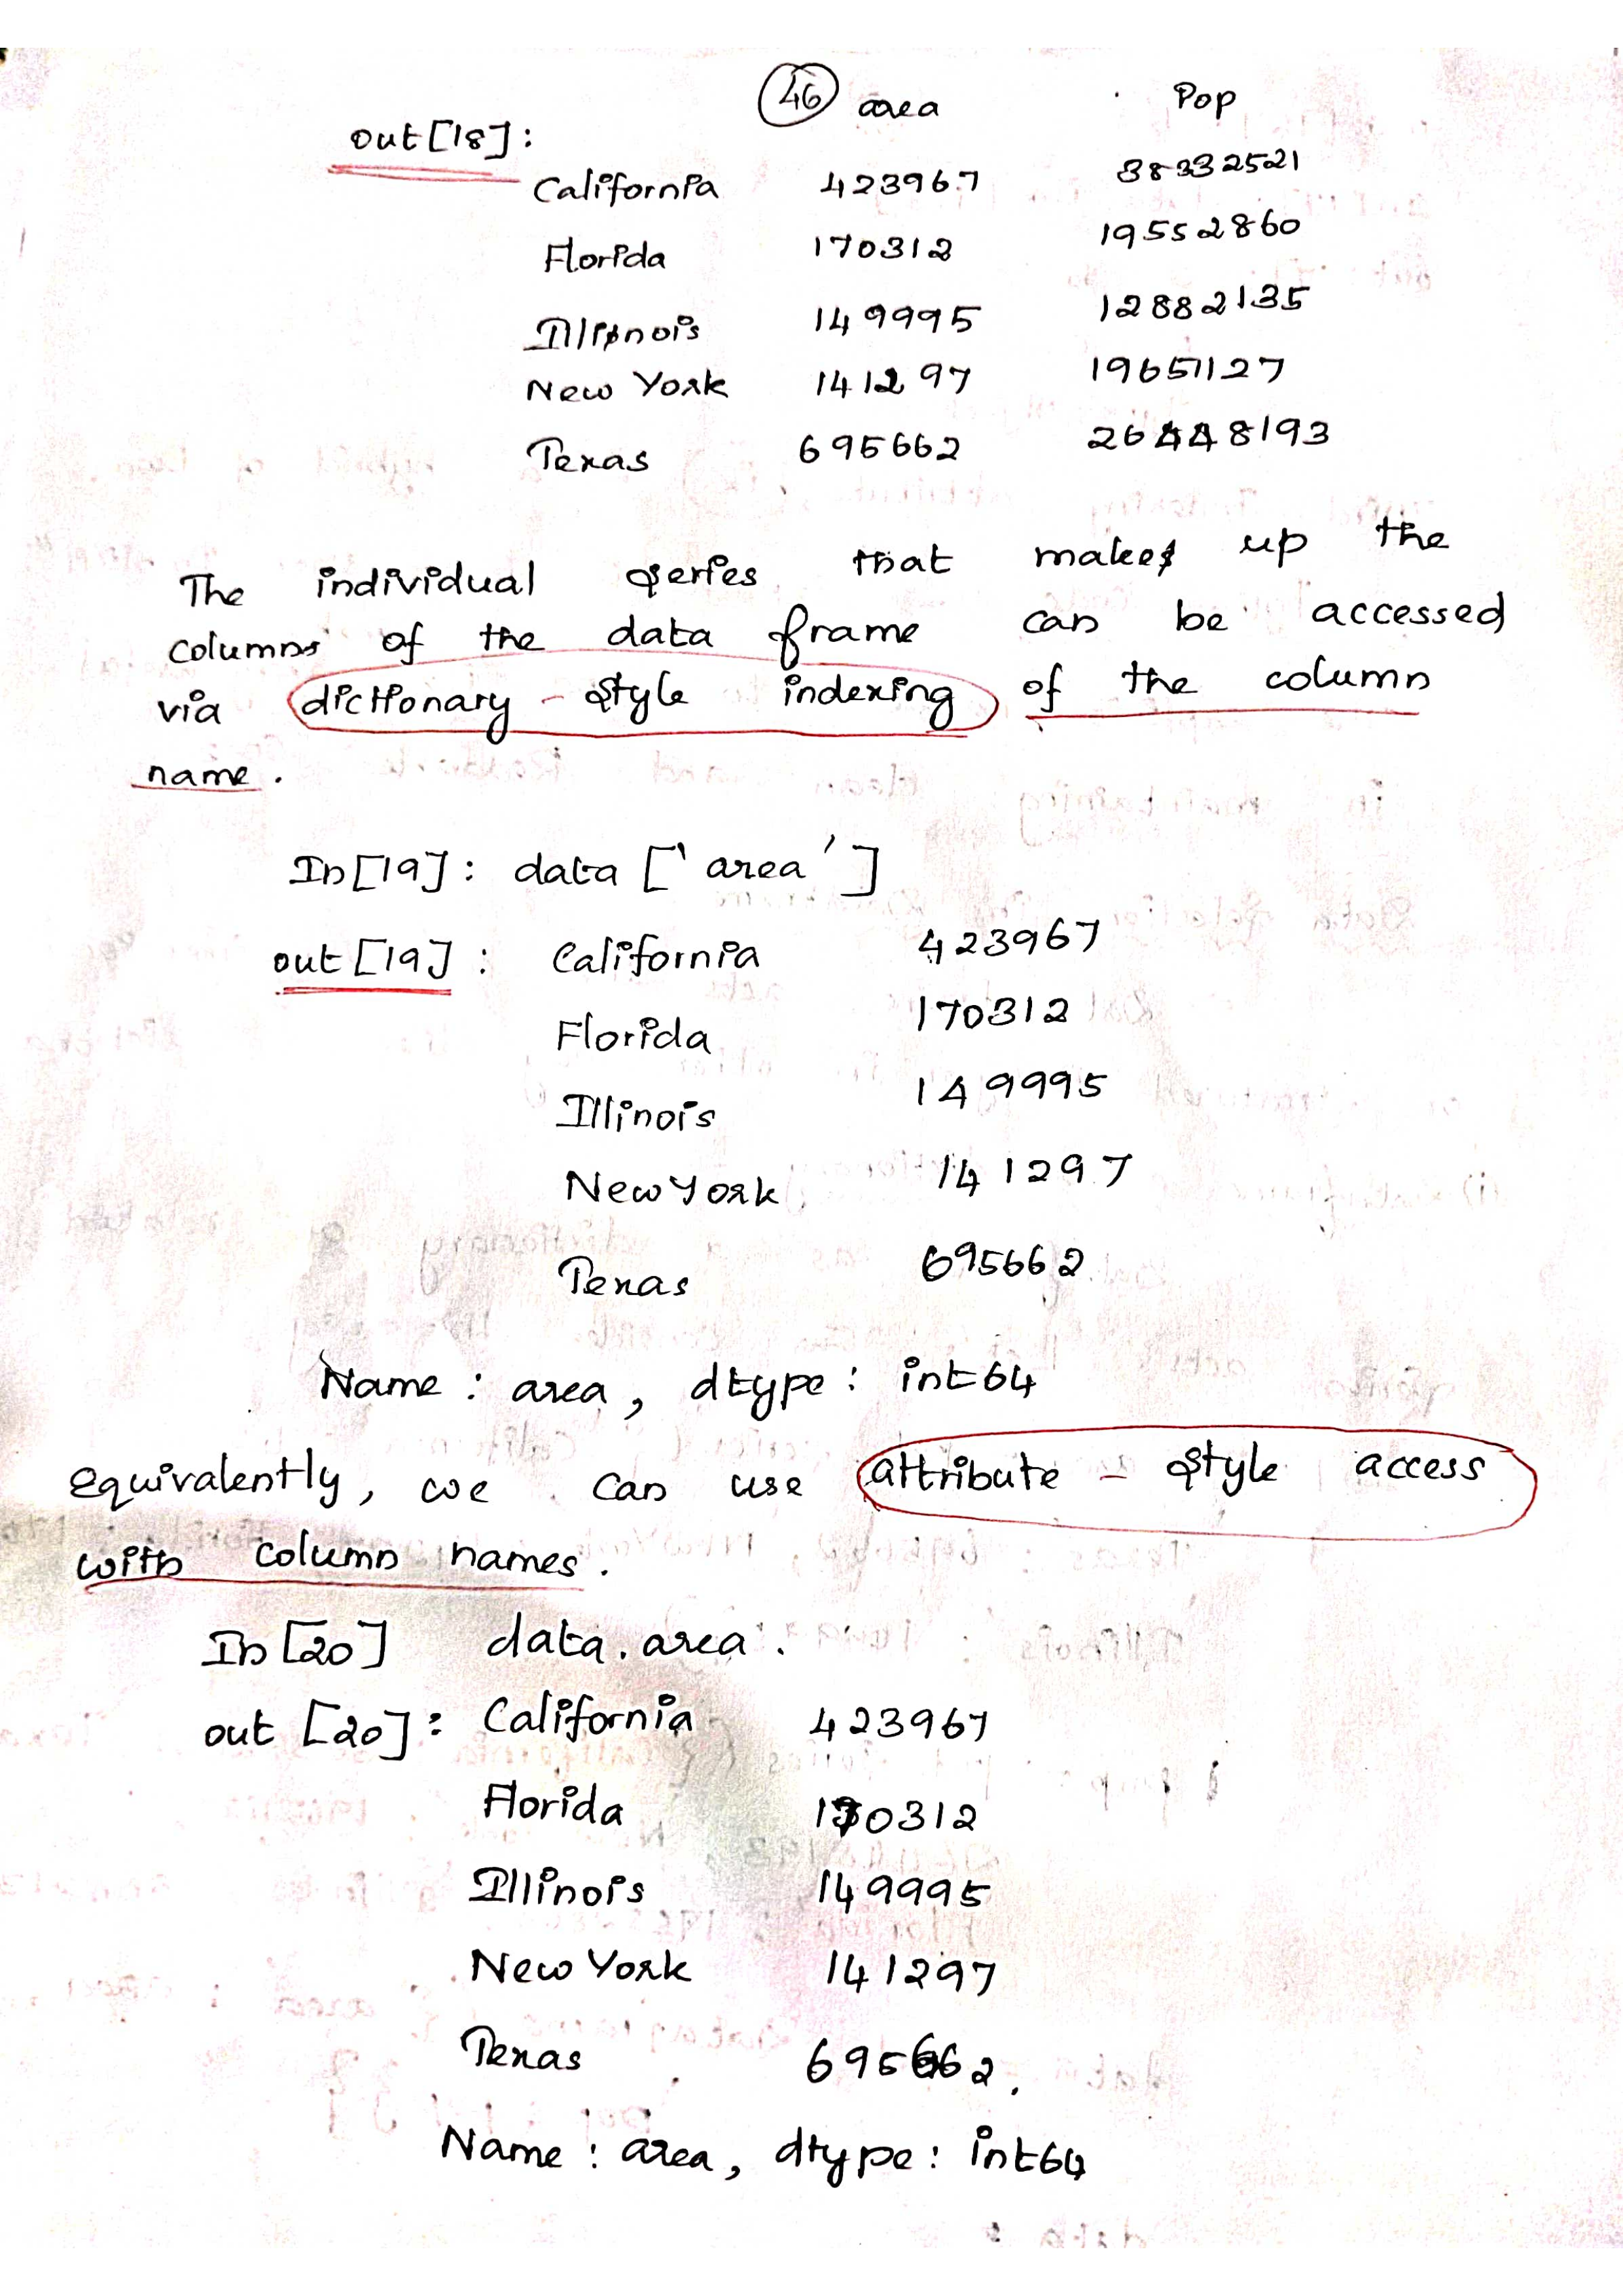 46 area Pop
out[18]:
California 423967 38332521
Florida 170312 19552860
Illinois 149995 12882135
New York 141297 19651127
Texas 695662 26448193
The individual series that makes up the
columns of the data frame can be accessed
via dictionary - style indexing of the column
name.
In[19]: data ['area']
out[19]: California 423967
Florida 170312
Illinois 149995
New York 141297
Texas 695662
Name : area, dtype: int64
equivalently, we can use attribute - style access
with column names.
In [20] data.area.
out [20]: California 423967
Florida 170312
Illinois 149995
New York 141297
Texas 695662.
Name : area, dtype: int64